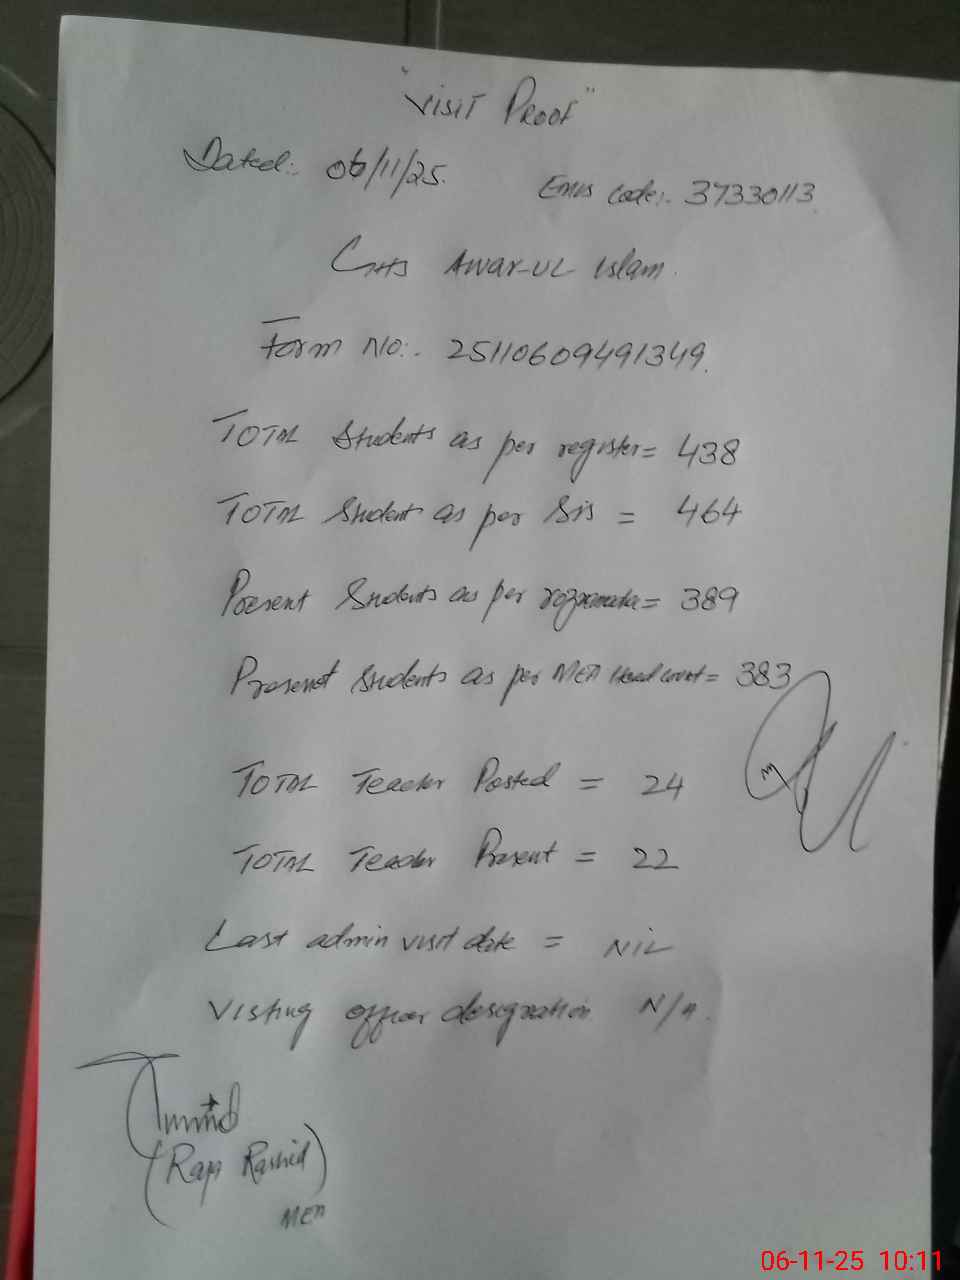 "Visit Proof"
Dated:- 06/11/25.
Emis Code:- 37330113
GHS Awar-ul Islam.
Form No:- 25110609491349.
Total Students as per register = 438
Total Student as per Sis = 464
Present Students as per roznamcha = 389
Present Students as per MEA Head count = 383
Total Teacher Posted = 24
Total Teacher Present = 22
Last admin visit date = Nil
Visting officer designation N/A.
(Raja Rashid)
MEA
06-11-25 10:11